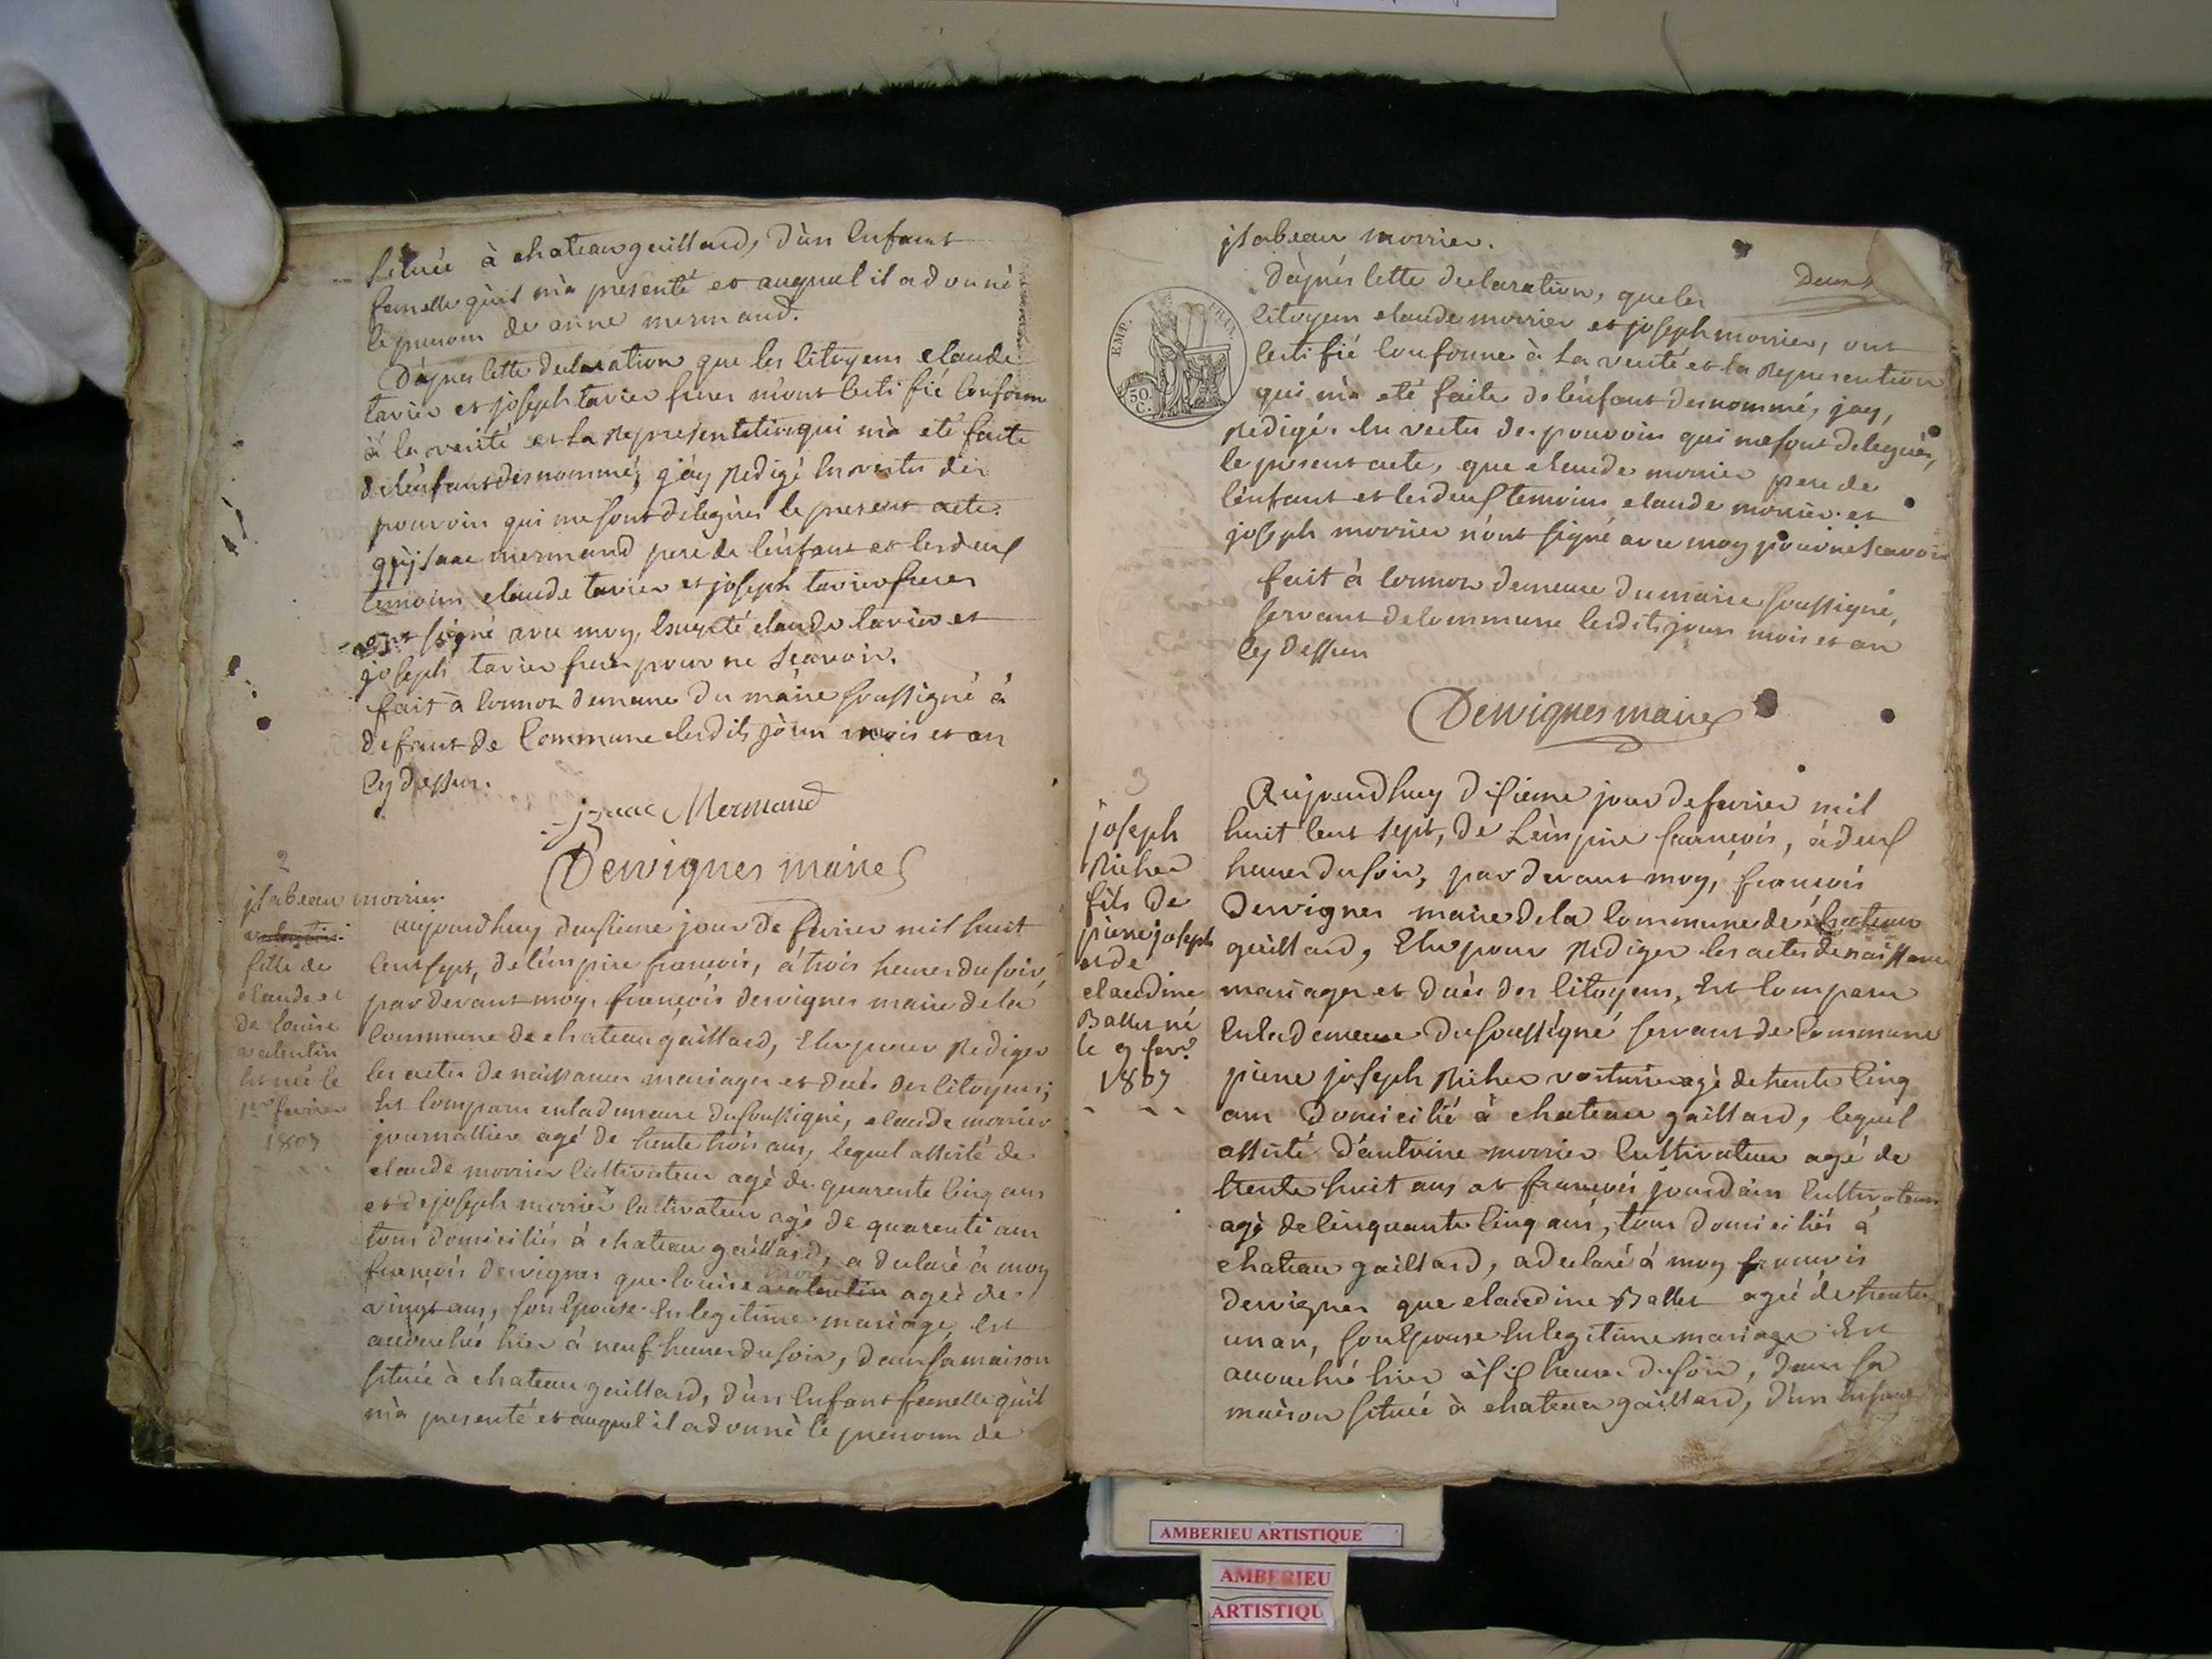 située à chateau gaillard, d'un Enfant
femelle qu'il m'a presenté et auquel il a donné
le prenom de anne mermand.
D'apres cette declaration que les citoyens claude
tavier et joseph tavier freres m'ont certifié conforme
à la verité et la representation qui m'a eté faite
de l'enfant denommé, j'ay redigé en vertu des
pouvoirs qui me sont delegués le present acte.
qu'jsaac mermand pere de l'enfant et les deux
temoins claude tavier et joseph tavier freres
ont signé avec moy, excepté claude tavier et
joseph tavier freres pour ne scavoir.
fait à cormoz demeure du maire soussigné à
defaut de Commune lesdits jour mois et an
cy dessus.
jzaac Mermand
Dervignes maire
2
jsabeau morrier
valentin
fille de
claude et
de louise
valentin
est née le
1er fevrier
1807
aujourdhuy deuxieme jour de fevrier mil huit
cent sept, de l'empire francois, à trois heures du soir,
par devant moy, francois dervignes maire de la
Commune de chateau gaillard, Elu pour Rediger
les actes de naissances mariages et decés des citoyens;
Est Comparu en la demeure du soussigné, claude morrier
journallier agé de trente trois ans, lequel assisté de
claude morrier cultivateur agé de quarente cinq ans
et de joseph morrier cultivateur agé de quarente ans
tous domiciliés à chateau gaillard, a declaré à moy
francois dervignes que louise valentin agée de
vingt ans, son Epouse en legitime mariage, est
accouchée hier à neuf heures du soir, dans sa maison
située à chateau gaillard, d'un Enfant femelle qu'il
m'a presenté et auquel il a donné le prenom de
jsabeau morrier.
Deux
D'après cette declaration, que les
citoyens claude morrier et joseph morrier, ont
certifié conforme à la verité et la representation
qui m'a eté faite de l'enfant denommé, jay,
redigés en vertu des pouvoirs qui me sont delegués,
le present acte, que claude morrier pere de
l'enfant et les deux temoins claude morrier et
joseph morrier n'ont signé avec moy pour ne scavoir
fait à cormoz demeure du maire soussigné,
servant de commune lesdits jours mois et an
cy dessus
Dervignes maire
EMP. FRAN.
50.
C.
3
joseph
Richer
fils de
pierre joseph
et de
claudine
Ballet né
le 9 fevr.
1807
Aujourdhuy dixieme jour de fevrier mil
huit cent sept, de L'empire francois, à deux
heures du soir, par devant moy, francois
Dervignes maire de la Commune de chateau
gaillard, Elu pour Rediger les actes de naissances
mariages et decés des citoyens, Est Comparu
en la demeure du soussigné servant de Commune
pierre joseph Richer voiturier agé de trente cinq
ans domicilié à chateau gaillard, lequel
assisté d'antoine morrier cultivateur agé de
trente huit ans et francois jourdain cultivateur
agé de cinquante cinq ans, tous domiciliés à
chateau gaillard, a declaré à moy francois
Dervignes que claudine Ballet agée de trente
un an, son Epouse en legitime mariage Est
accouchée hier à six heures du soir, dans sa
maison située à chateau gaillard, d'un Enfant
AMBERIEU ARTISTIQUE
AMBERIEU
ARTISTIQU